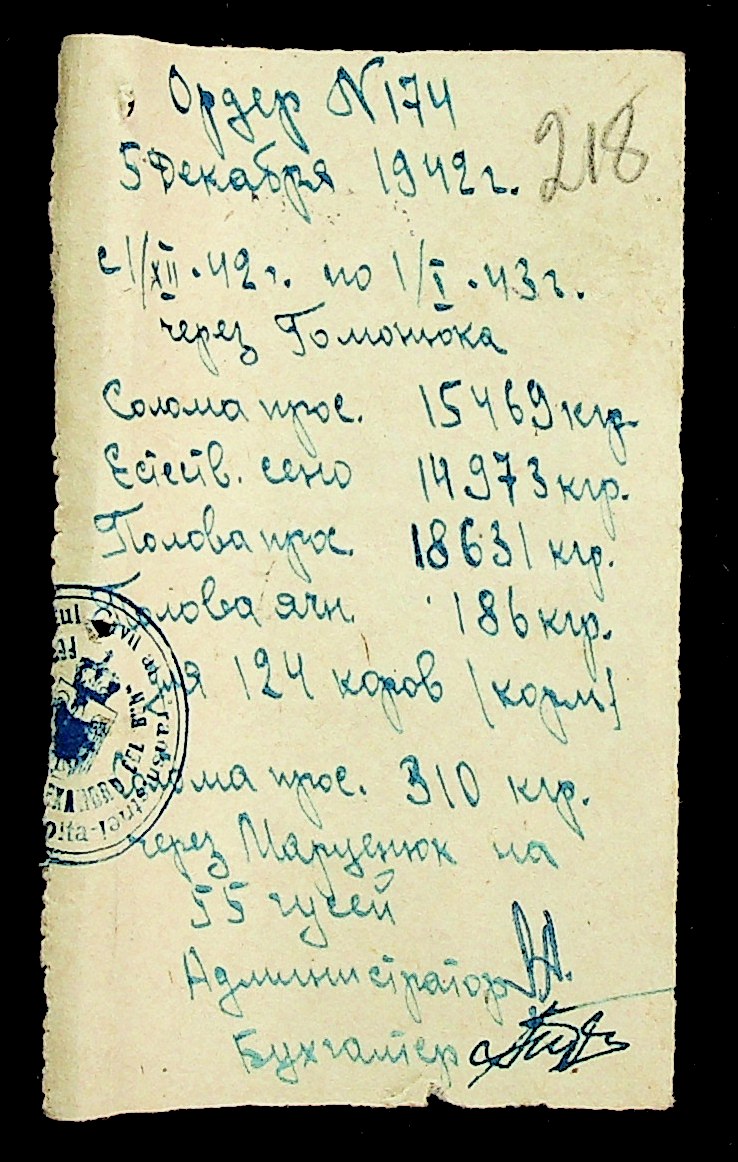 Ордер N 174
218
5 Декабря 1942 г.
с 1/XII. 42 г. по 1/I. 43 г.
через Гомонюка
Солома прос. 15469 кгр.
Естеств. сено 14973 кгр.
Полова прос. 18631 кгр.
Полова ячн. 186 кгр.
для 124 коров (корм)
Солома прос. 310 кгр.
через Марценюк на
55 гусей
Администратор
Бухгалтер